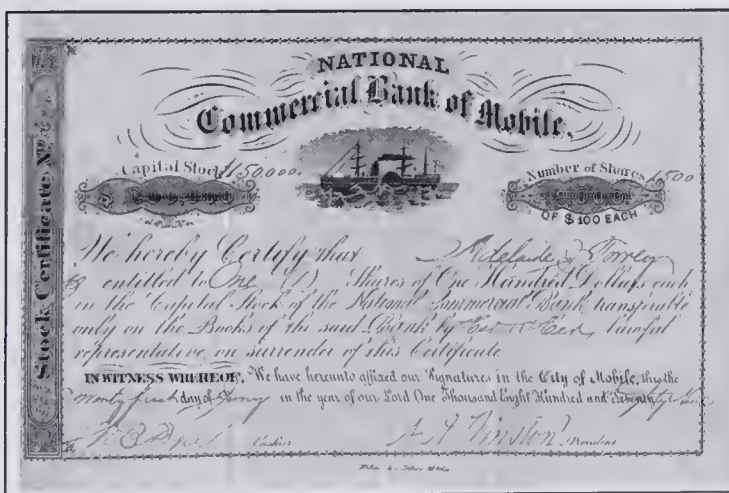 NATIONAL
Commercial Bank of Mobile.
Capital Stock $150,000.
Number of Shares 1,500
OF $100 EACH
Stock Certificate No.
We hereby Certify that Adelaide
entitled to One (1) Shares of One Hundred Dollars each
in the Capital Stock of the National Commercial Bank, transferable
only on the Books of the said Bank by Her or Her lawful
representative, on surrender of this Certificate
IN WITNESS WHEREOF, We have hereunto affixed our Signatures in the City of Mobile, this the
twenty first day of in the year of our Lord One Thousand Eight Hundred and Seventy
Cashier A A Winston President